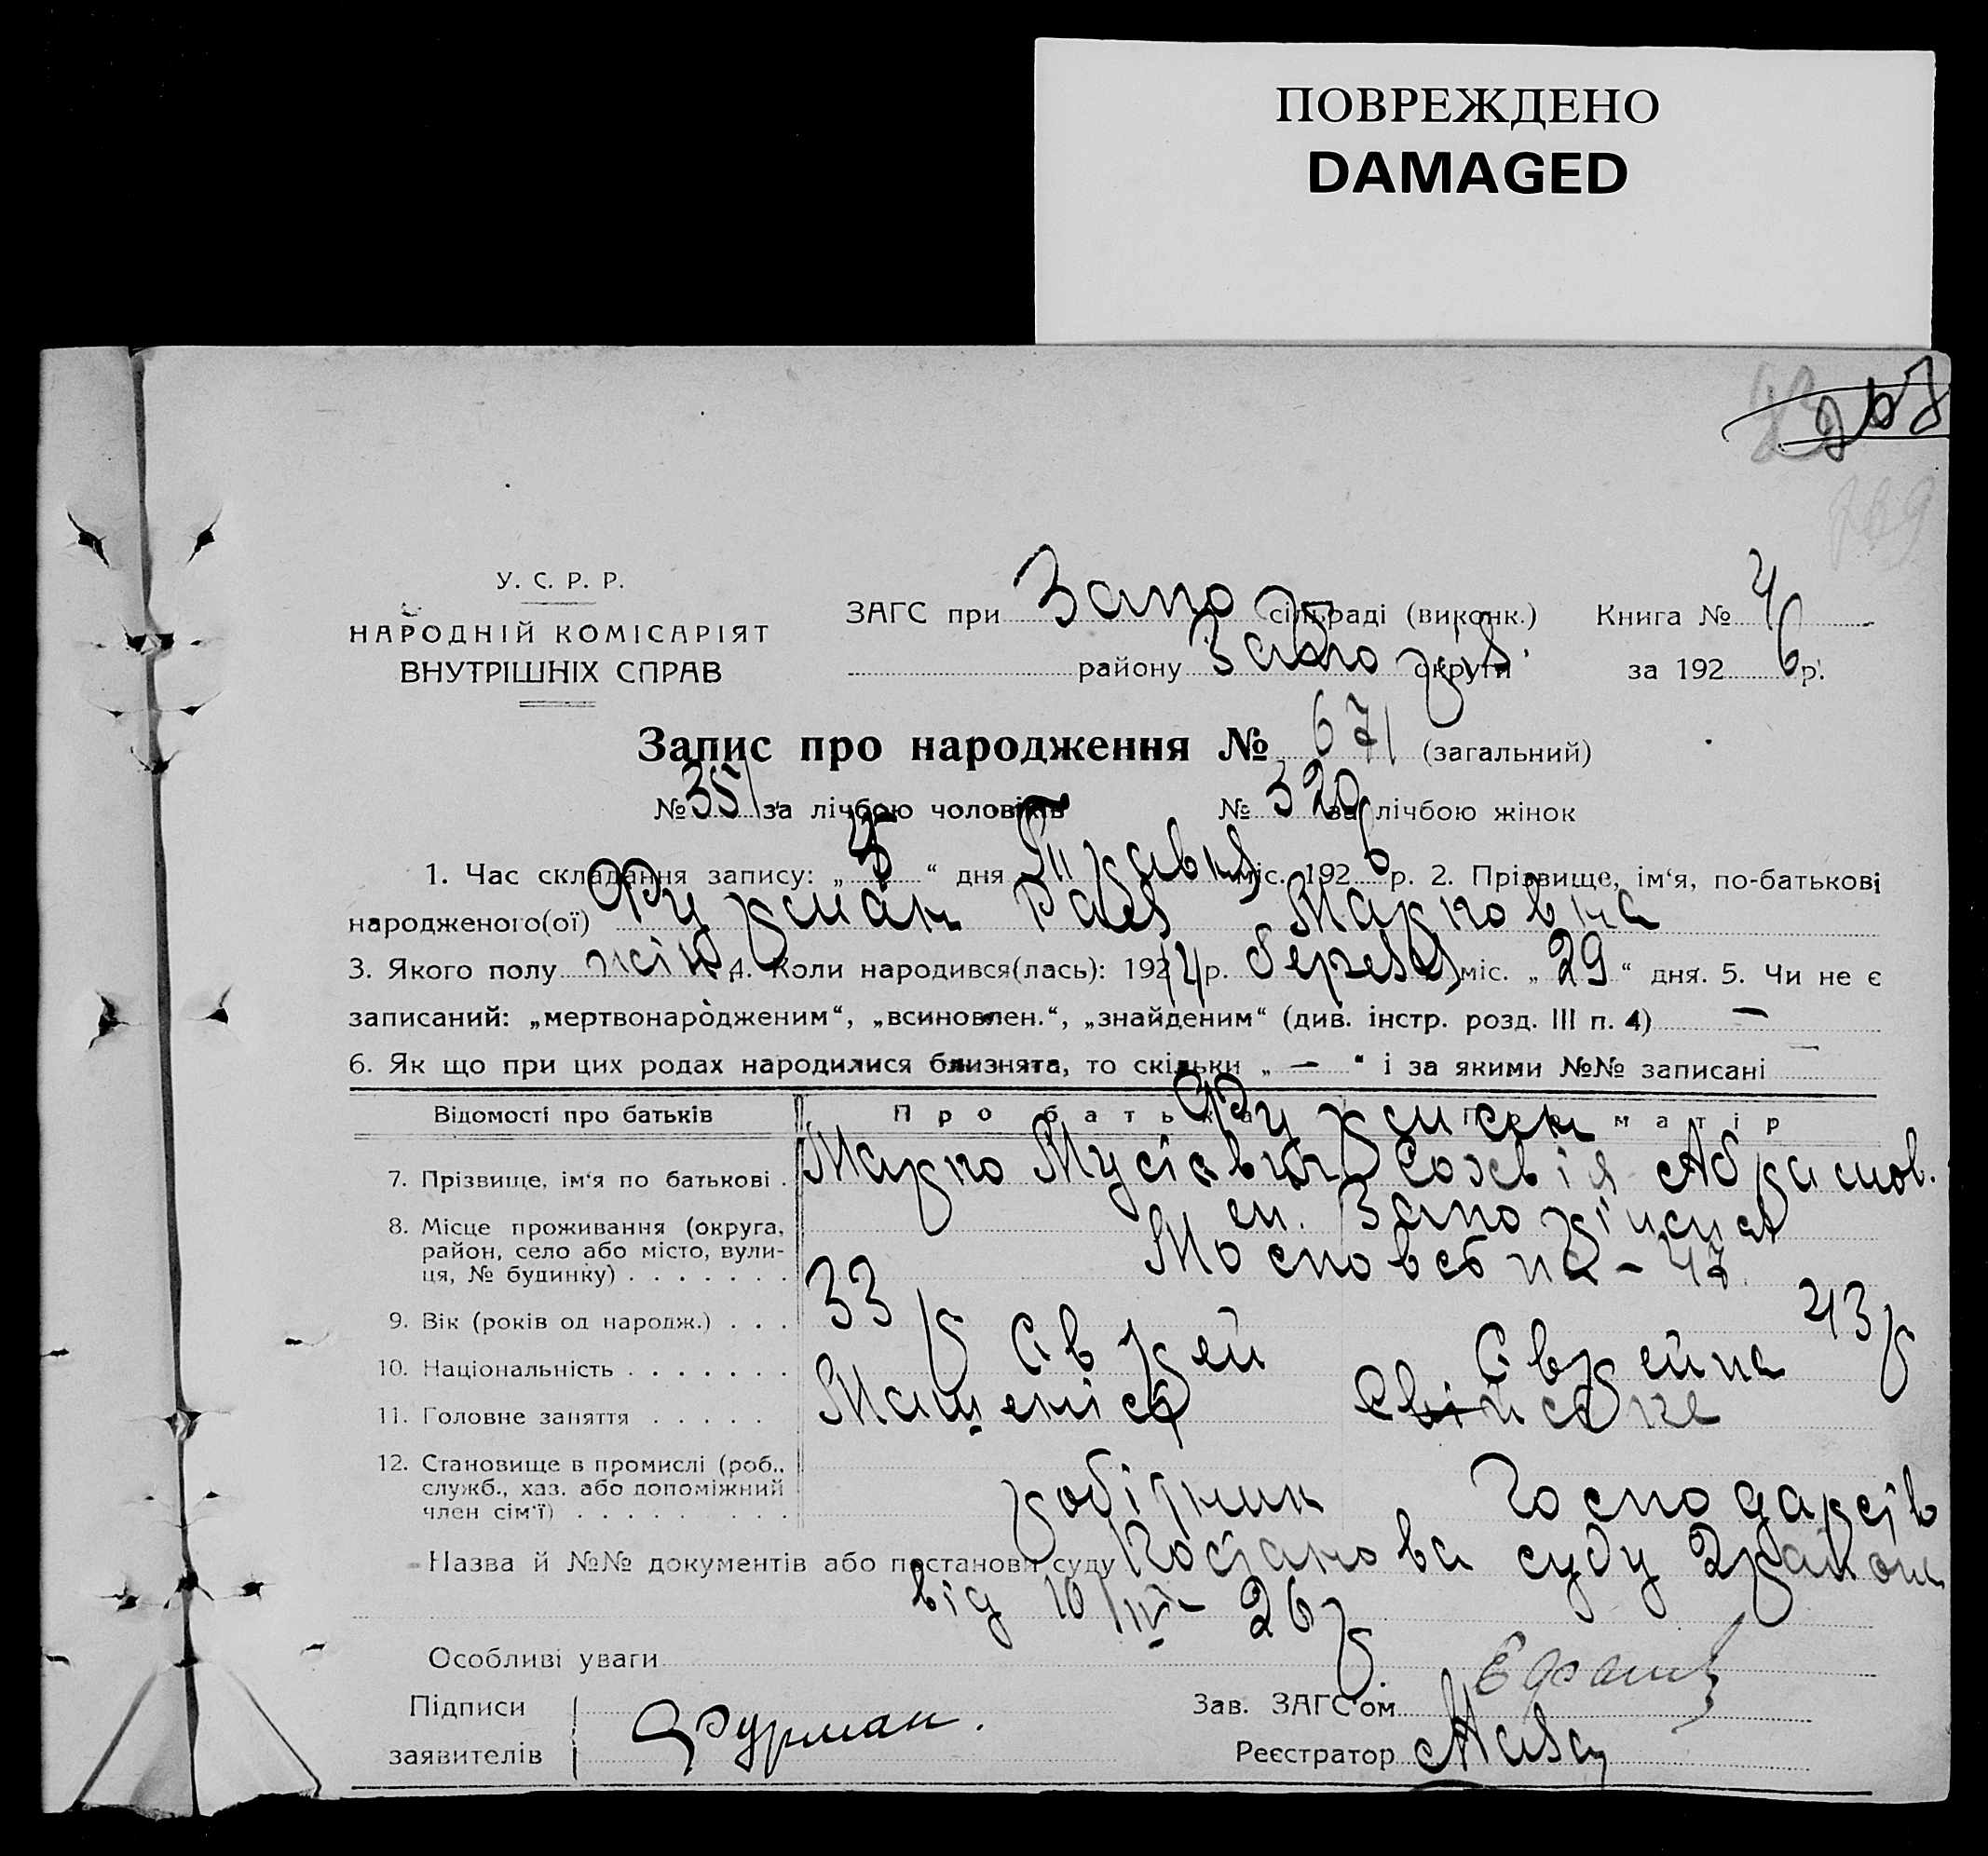 ПОВРЕЖДЕНО
DAMAGED
У. С. Р. Р.
НАРОДНІЙ КОМІСАРІЯТ
ВНУТРІШНІХ СПРАВ
ЗАГС при Запо сільраді (виконк.) Книга № 4
району Запо округи за 1926 р.
Запис про народження № 671 (загальний)
№ 351 за лічбою чоловіків № 320 за лічбою жінок
1. Час складання запису: „ “ дня Травня міс. 1926 р. 2. Прізвище, ім‘я, по-батькові
народженого(ої) Фурман Раєя Марковна
3. Якого полу жін 4. Коли народився(лась): 1914 р. березня міс. „ 29 “ дня. 5. Чи не є
записаний: „мертвонародженим“, „всиновлен.“, „знайденим“ (див. інстр. розд. III п. 4) —
6. Як що при цих родах народилися близнята, то скільки „ — “ і за якими №№ записані —
Відомості про батьків Про батька Про матір
Фурман
7. Прізвище, ім‘я по батькові . Марко Мусієвич Абрамов.
8. Місце проживання (округа, район, село або місто, вулиця, № будинку) . . . . . . . м. Запоріжжя
Московська - 47.
9. Вік (років од народж.) . . . 33 р 43 р
10. Національність . . . . . . . Єврей Єврейка
11. Головне заняття . . . . . Свійське
12. Становище в промислі (роб., служб., хаз. або допоміжний член сім‘ї) . . . . . . . . . робітник Господарсів
Назва й №№ документів або постанови суду Постанова суду 2 района
від 10/IV - 26 р.
Особливі уваги
Підписи
заявителів Фурман.
Зав. ЗАГС‘ом
Реєстратор